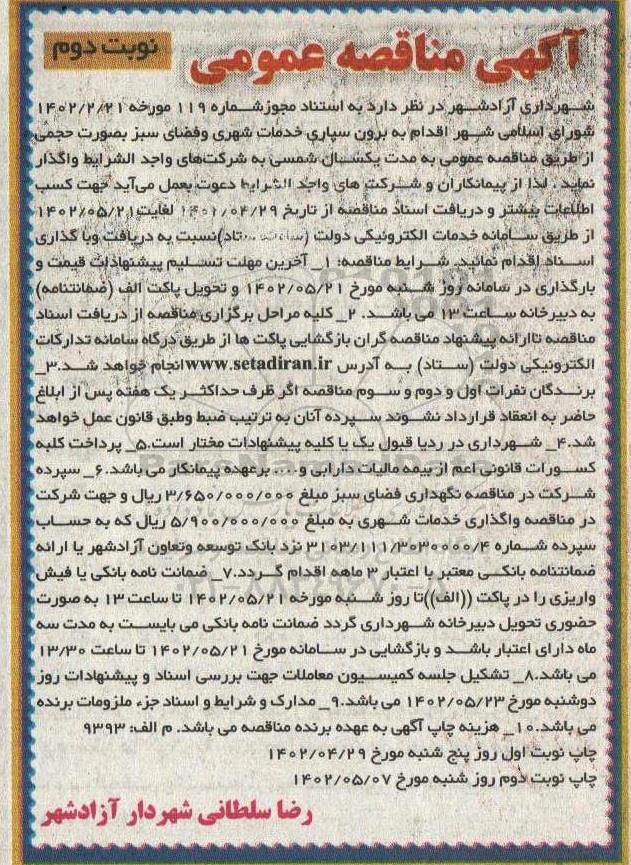 آگهی مناقصه عمومی
نوبت دوم
شهرداری آزادشهر در نظر دارد به استناد مجوزشماره ۱۱۹ مورخه ۱۴۰۲/۲/۲۱
شورای اسلامی شهر اقدام به برون سپاری خدمات شهری وفضای سبز بصورت حجمی
از طریق مناقصه عمومی به مدت یکسال شمسی به شرکت‌های واجد الشرایط واگذار
نماید . لذا از پیمانکاران و شرکت های واجد الشرایط دعوت بعمل می‌آید جهت کسب
اطلاعات بیشتر و دریافت اسناد مناقصه از تاریخ ۱۴۰۲/۰۴/۲۹ لغایت۱۴۰۲/۰۵/۲۱
از طریق سامانه خدمات الکترونیکی دولت (سامانه ستاد)نسبت به دریافت وبا گذاری
اسناد اقدام نمائید. شرایط مناقصه: ۱_ آخرین مهلت تسلیم پیشنهادات قیمت و
بارگذاری در سامانه روز شنبه مورخ ۱۴۰۲/۰۵/۲۱ و تحویل پاکت الف (ضمانتنامه)
به دبیرخانه ساعت ۱۳ می باشد. ۲_ کلیه مراحل برگزاری مناقصه از دریافت اسناد
مناقصه تاارائه پیشنهاد مناقصه گران بازگشایی پاکت ها از طریق درگاه سامانه تدارکات
الکترونیکی دولت (ستاد) به آدرس www.setadiran.ir انجام خواهد شد.۳_
برندگان نفرات اول و دوم و سوم مناقصه اگر ظرف حداکثر یک هفته پس از ابلاغ
حاضر به انعقاد قرارداد نشوند سپرده آنان به ترتیب ضبط وطبق قانون عمل خواهد
شد.۴_ شهرداری در ردیا قبول یک یا کلیه پیشنهادات مختار است.۵_ پرداخت کلیه
کسورات قانونی اعم از بیمه مالیات دارایی و .... برعهده پیمانکار می باشد.۶_ سپرده
شرکت در مناقصه نگهداری فضای سبز مبلغ ۳/۶۵۰/۰۰۰/۰۰۰ ریال و جهت شرکت
در مناقصه واگذاری خدمات شهری به مبلغ ۵/۹۰۰/۰۰۰/۰۰۰ ریال که به حساب
سپرده شماره ۳۱۰۳/۱۱۱/۳۰۳۰۰۰۰/۴ نزد بانک توسعه وتعاون آزادشهر یا ارائه
ضمانتنامه بانکی معتبر با اعتبار ۳ ماهه اقدام گردد.۷_ ضمانت نامه بانکی یا فیش
واریزی را در پاکت ((الف))تا روز شنبه مورخه ۱۴۰۲/۰۵/۲۱ تا ساعت ۱۳ به صورت
حضوری تحویل دبیرخانه شهرداری گردد ضمانت نامه بانکی می بایست به مدت سه
ماه دارای اعتبار باشد و بازگشایی در سامانه مورخ ۱۴۰۲/۰۵/۲۱ تا ساعت ۱۳/۳۰
می باشد.۸_ تشکیل جلسه کمیسیون معاملات جهت بررسی اسناد و پیشنهادات روز
دوشنبه مورخ ۱۴۰۲/۰۵/۲۳ می باشد.۹_ مدارک و شرایط و اسناد جزء ملزومات برنده
می باشد.۱۰_ هزینه چاپ آگهی به عهده برنده مناقصه می باشد. م الف: ۹۳۹۳
چاپ نوبت اول روز پنج شنبه مورخ ۱۴۰۲/۰۴/۲۹
چاپ نوبت دوم روز شنبه مورخ ۱۴۰۲/۰۵/۰۷
رضا سلطانی شهردار آزادشهر